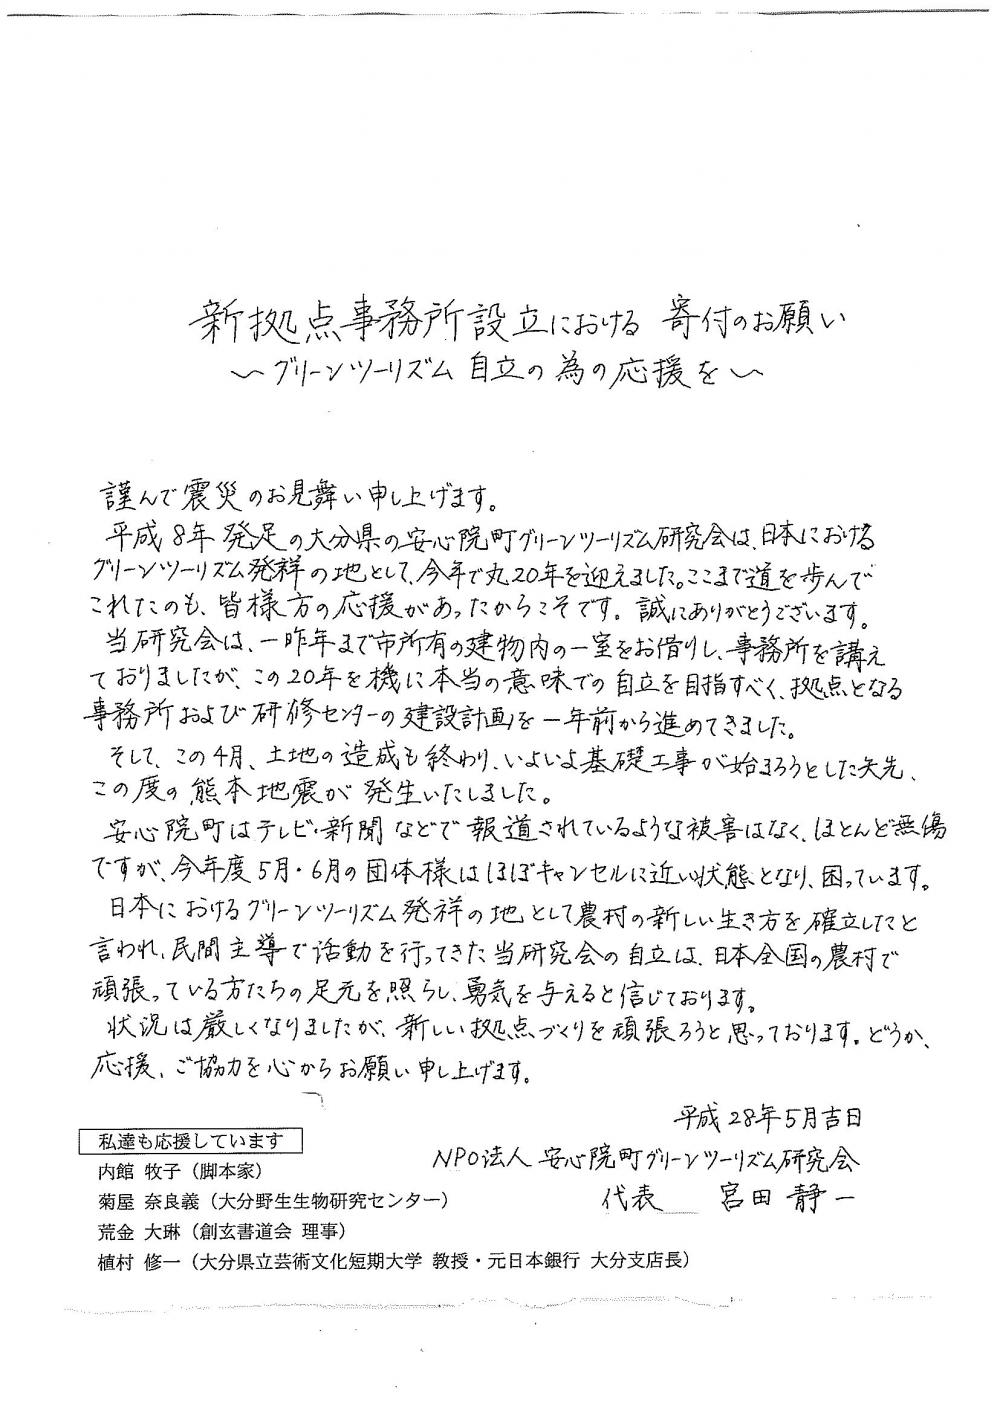 新拠点事務所設立における 寄付のお願い
～グリーンツーリズム 自立の為の応援を～
謹んで震災のお見舞い申し上げます。
平成8年発足の大分県の安心院町グリーンツーリズム研究会は、日本における
グリーンツーリズム発祥の地として、今年で丸20年を迎えました。ここまで道を歩んで
これたのも、皆様方の応援があったからこそです。誠にありがとうございます。
当研究会は、一昨年まで市所有の建物内の一室をお借りし、事務所を講え
ておりましたが、この20年を機に本当の意味での自立を目指すべく、拠点となる
事務所および研修センターの建設計画を一年前から進めてきました。
そして、この4月、土地の造成も終わり、いよいよ基礎工事が始まろうとした矢先、
この度の熊本地震が発生いたしました。
安心院町はテレビ・新聞などで報道されているような被害はなく、ほとんど無傷
ですが、今年度5月・6月の団体様はほぼキャンセルに近い状態となり、困っています。
日本におけるグリーンツーリズム発祥の地として農村の新しい生き方を確立したと
言われ、民間主導で活動を行ってきた当研究会の自立は、日本全国の農村で
頑張っている方たちの足元を照らし、勇気を与えると信じております。
状況は厳しくなりましたが、新しい拠点づくりを頑張ろうと思っております。どうか、
応援、ご協力を心からお願い申し上げます。
平成28年5月吉日
NPO法人 安心院町グリーンツーリズム研究会
代表 宮田静一
私達も応援しています
内館 牧子（脚本家）
菊屋 奈良義（大分野生生物研究センター）
荒金 大琳（創玄書道会 理事）
植村 修一（大分県立芸術文化短期大学 教授・元日本銀行 大分支店長）